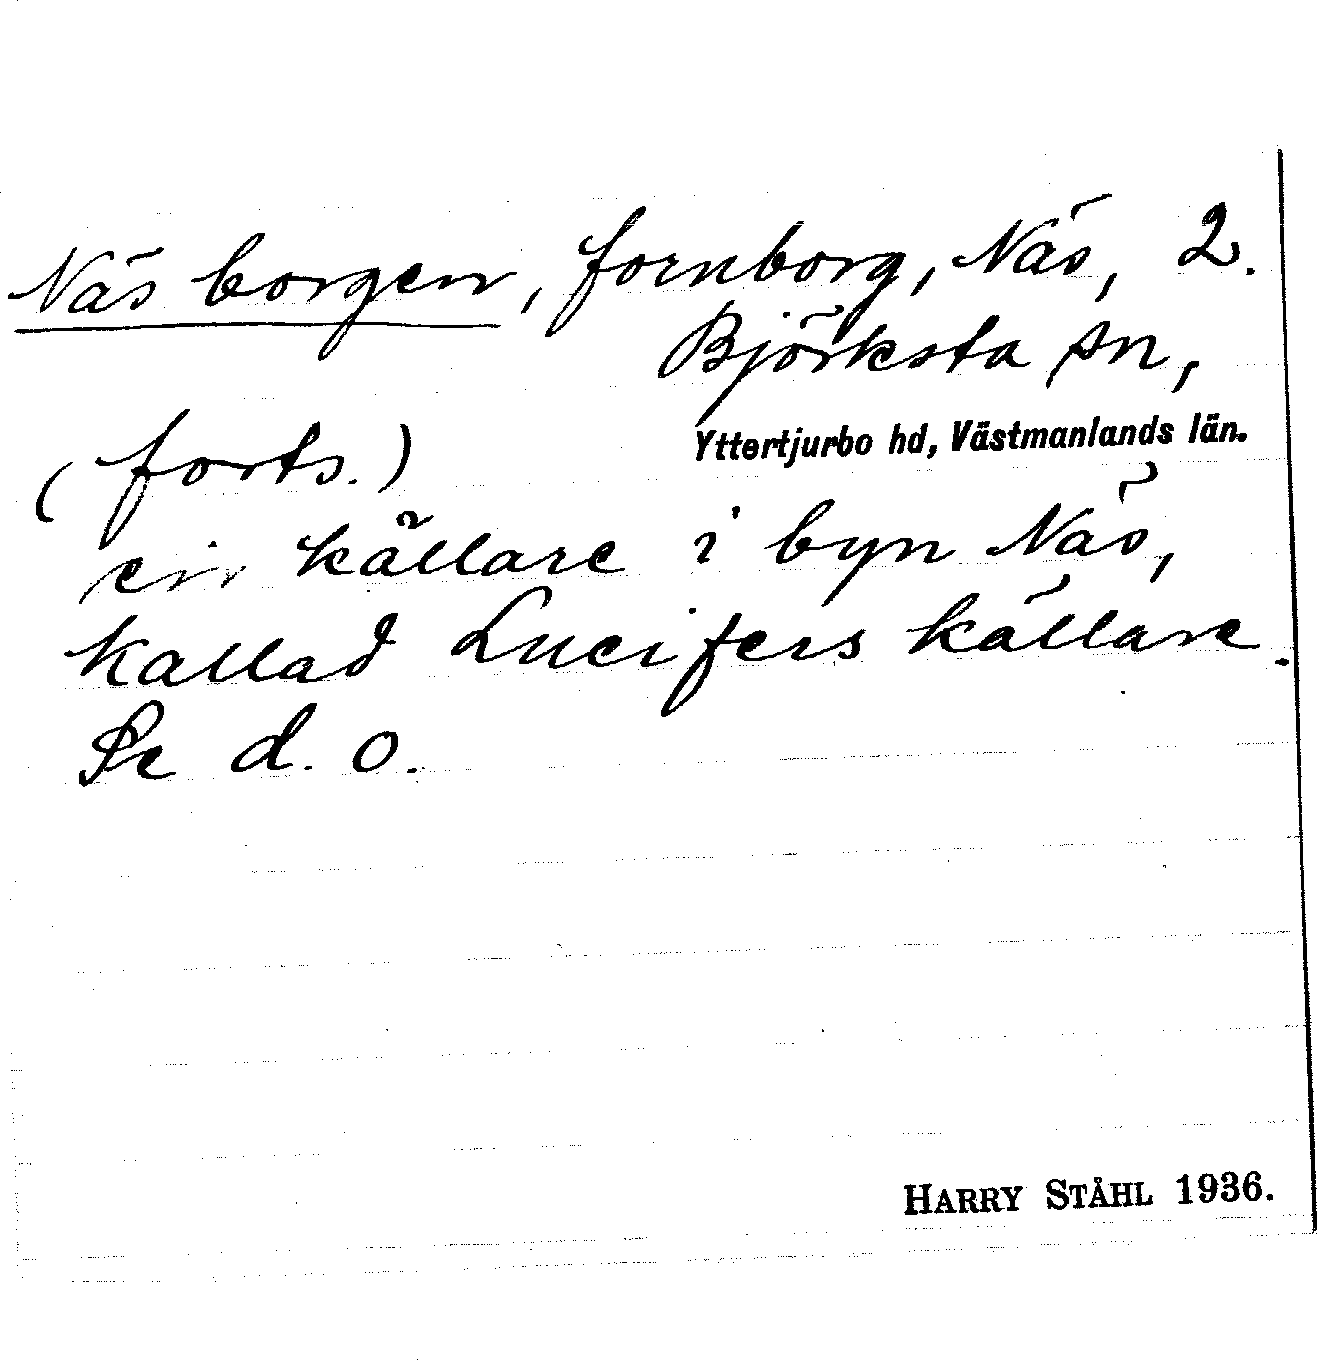 Näsborgen, fornborg, Näs, 2.
Björksta sn,
Yttertjurbo hd, Västmanlands län.
(forts.)
en källare i byn Näs,
kallad Lucifers källare.
Se d. o.
HARRY STÅHL 1936.